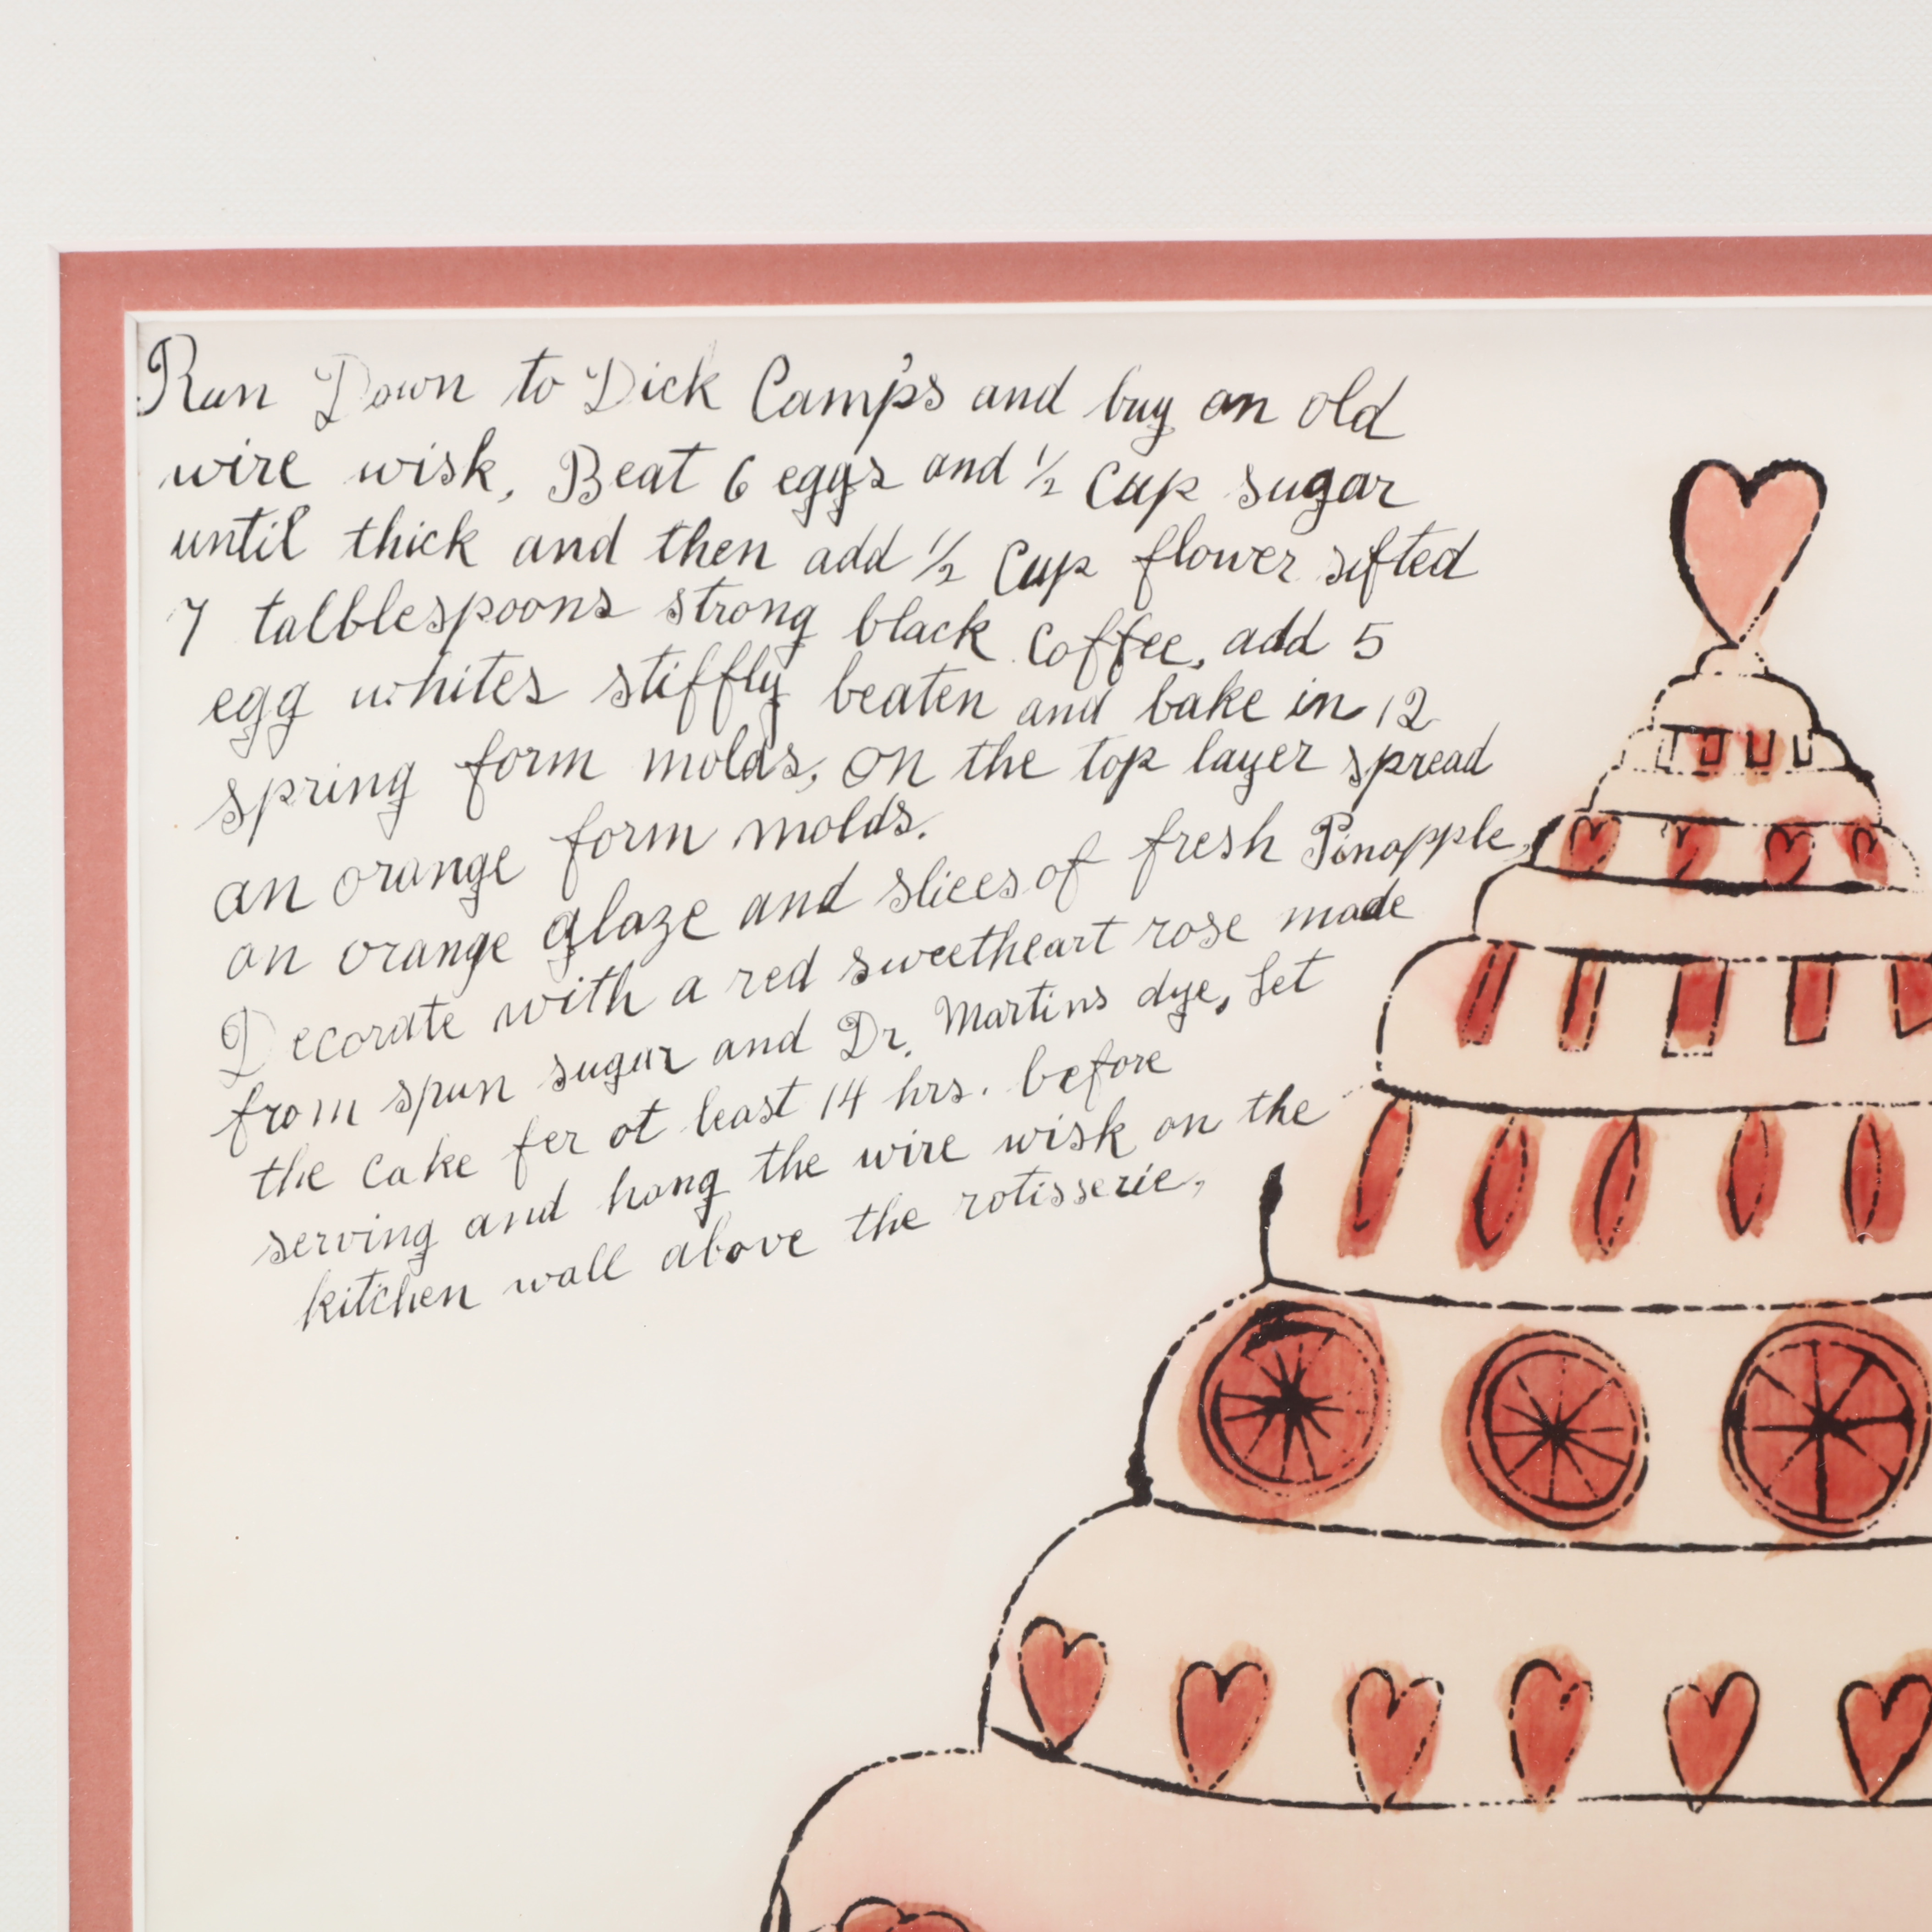 Run Down to Dick Camp's and buy an old
wire wisk, Beat 6 eggs and 1/2 Cup sugar
until thick and then add 1/2 Cup flower sifted
7 talblespoons strong black Coffee, add 5
egg whites stiffly beaten and bake in 12
spring form molds, on the top layer spread
an orange form molds.
an orange glaze and slices of fresh Pinapple,
Decorate with a red sweetheart rose made
from spun sugar and Dr. Martins dye, Let
the Cake fer at least 14 hrs. before
serving and hang the wire wisk on the
kitchen wall above the rotisserie,